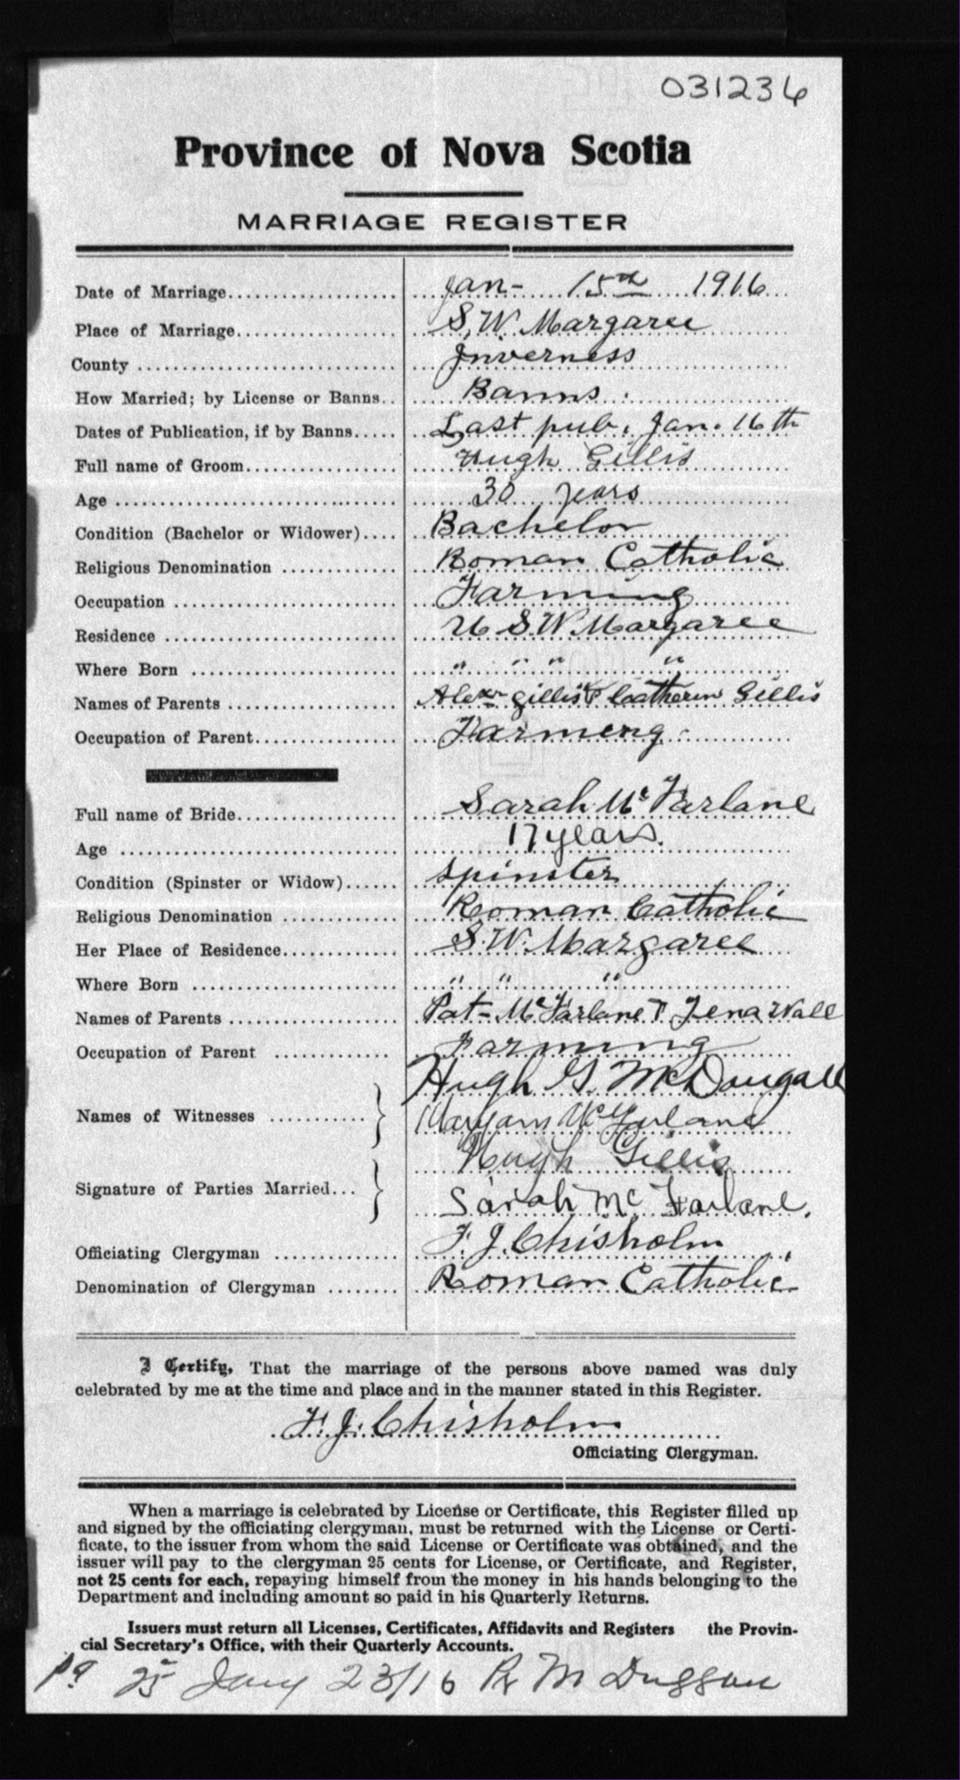 031236
Province of Nova Scotia
MARRIAGE REGISTER
Date of Marriage.................... Jan- 15th 1916
Place of Marriage................... S.W. Margaree
County .............................. Inverness
How Married; by License or Banns.. Banns.
Dates of Publication, if by Banns..... Last pub. Jan. 16th
Full name of Groom.................. Hugh Gillis
Age ................................. 30 years
Condition (Bachelor or Widower).... Bachelor
Religious Denomination ............. Roman Catholic
Occupation .......................... Farming
Residence ........................... U S.W. Margaree
Where Born ........................ " " " "
Names of Parents .................... Alexr Gillis & Catherin Gillis
Occupation of Parent................. Farmeng
Full name of Bride................... Sarah Mc Farlane
Age ................................. 17 years.
Condition (Spinster or Widow)...... Spinster
Religious Denomination ............. Roman Catholic
Her Place of Residence.............. S.W. Margaree
Where Born ........................ " " "
Names of Parents .................... Pat- McFarlane & Lena Wall
Occupation of Parent .............. Farming
Hugh G. McDougall
Names of Witnesses ............ Maryann McFarlane
Hugh Gillis
Signature of Parties Married... Sarah Mc Farlane.
Officiating Clergyman ............... F. J. Chisholm
Denomination of Clergyman ........ Roman Catholic
I Certify, That the marriage of the persons above named was duly
celebrated by me at the time and place and in the manner stated in this Register.
F. J. Chisholm
Officiating Clergyman.
When a marriage is celebrated by License or Certificate, this Register filled up
and signed by the officiating clergyman, must be returned with the License or Certi-
ficate, to the issuer from whom the said License or Certificate was obtained, and the
issuer will pay to the clergyman 25 cents for License, or Certificate, and Register,
not 25 cents for each, repaying himself from the money in his hands belonging to the
Department and including amount so paid in his Quarterly Returns.
Issuers must return all Licenses, Certificates, Affidavits and Registers the Provin-
cial Secretary's Office, with their Quarterly Accounts.
pd 25 Jany 23/16 M Duggan